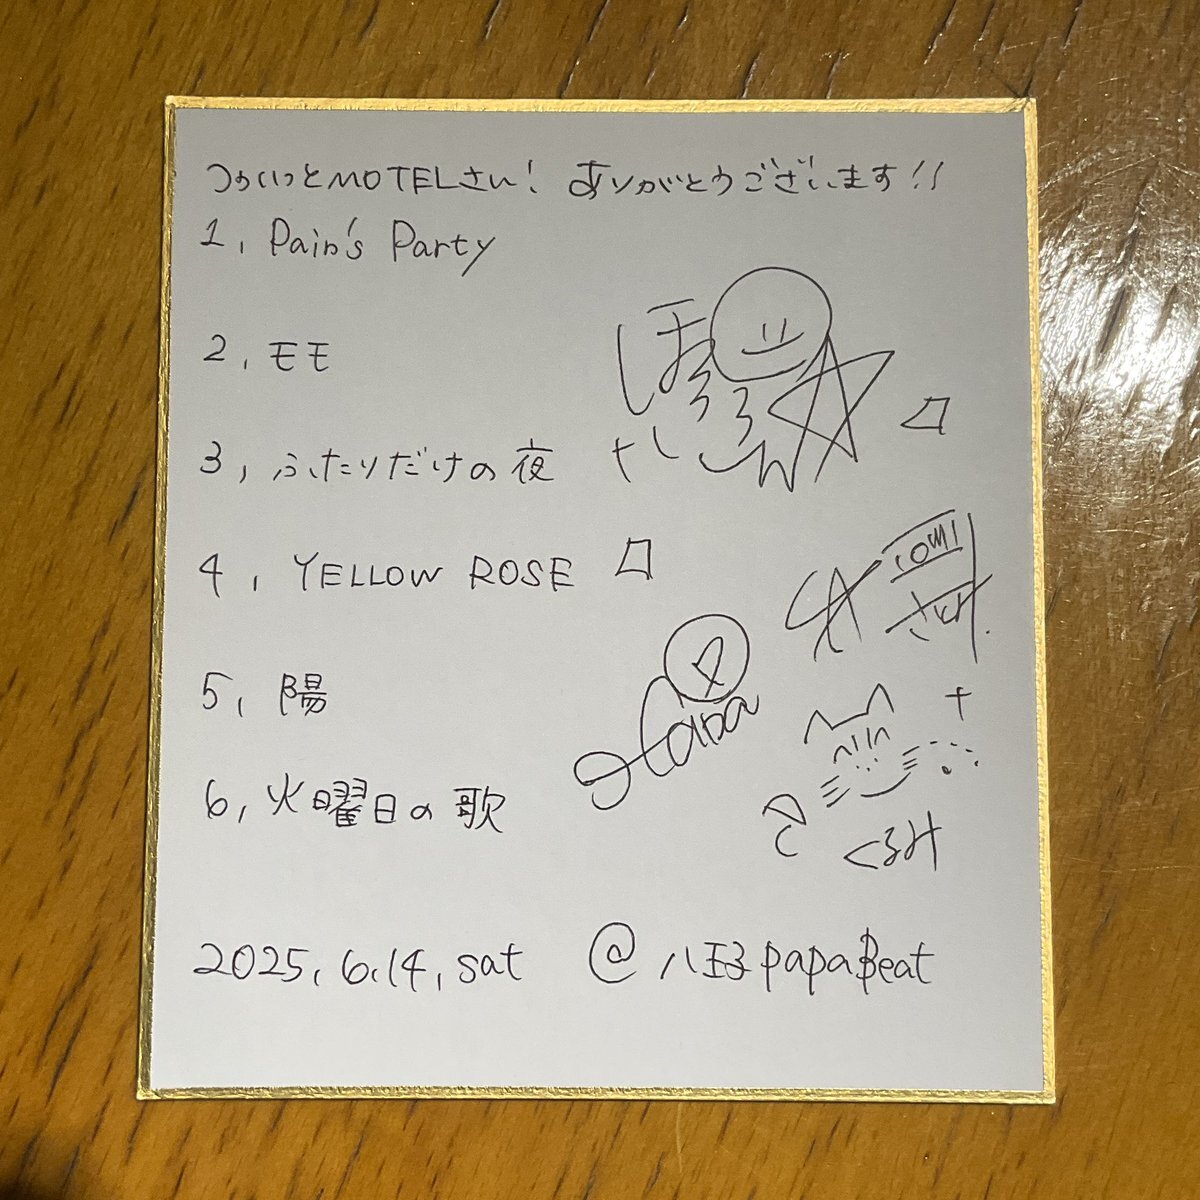 つぃぃっとMOTELさん! ありがとうございます!!
1, Pain's Party
2, モモ
3, ふたりだけの夜
4, YELLOW ROSE
5, 陽
6, 火曜日の歌
くるみ
2025, 6.14, sat @ 八王子papaBeat